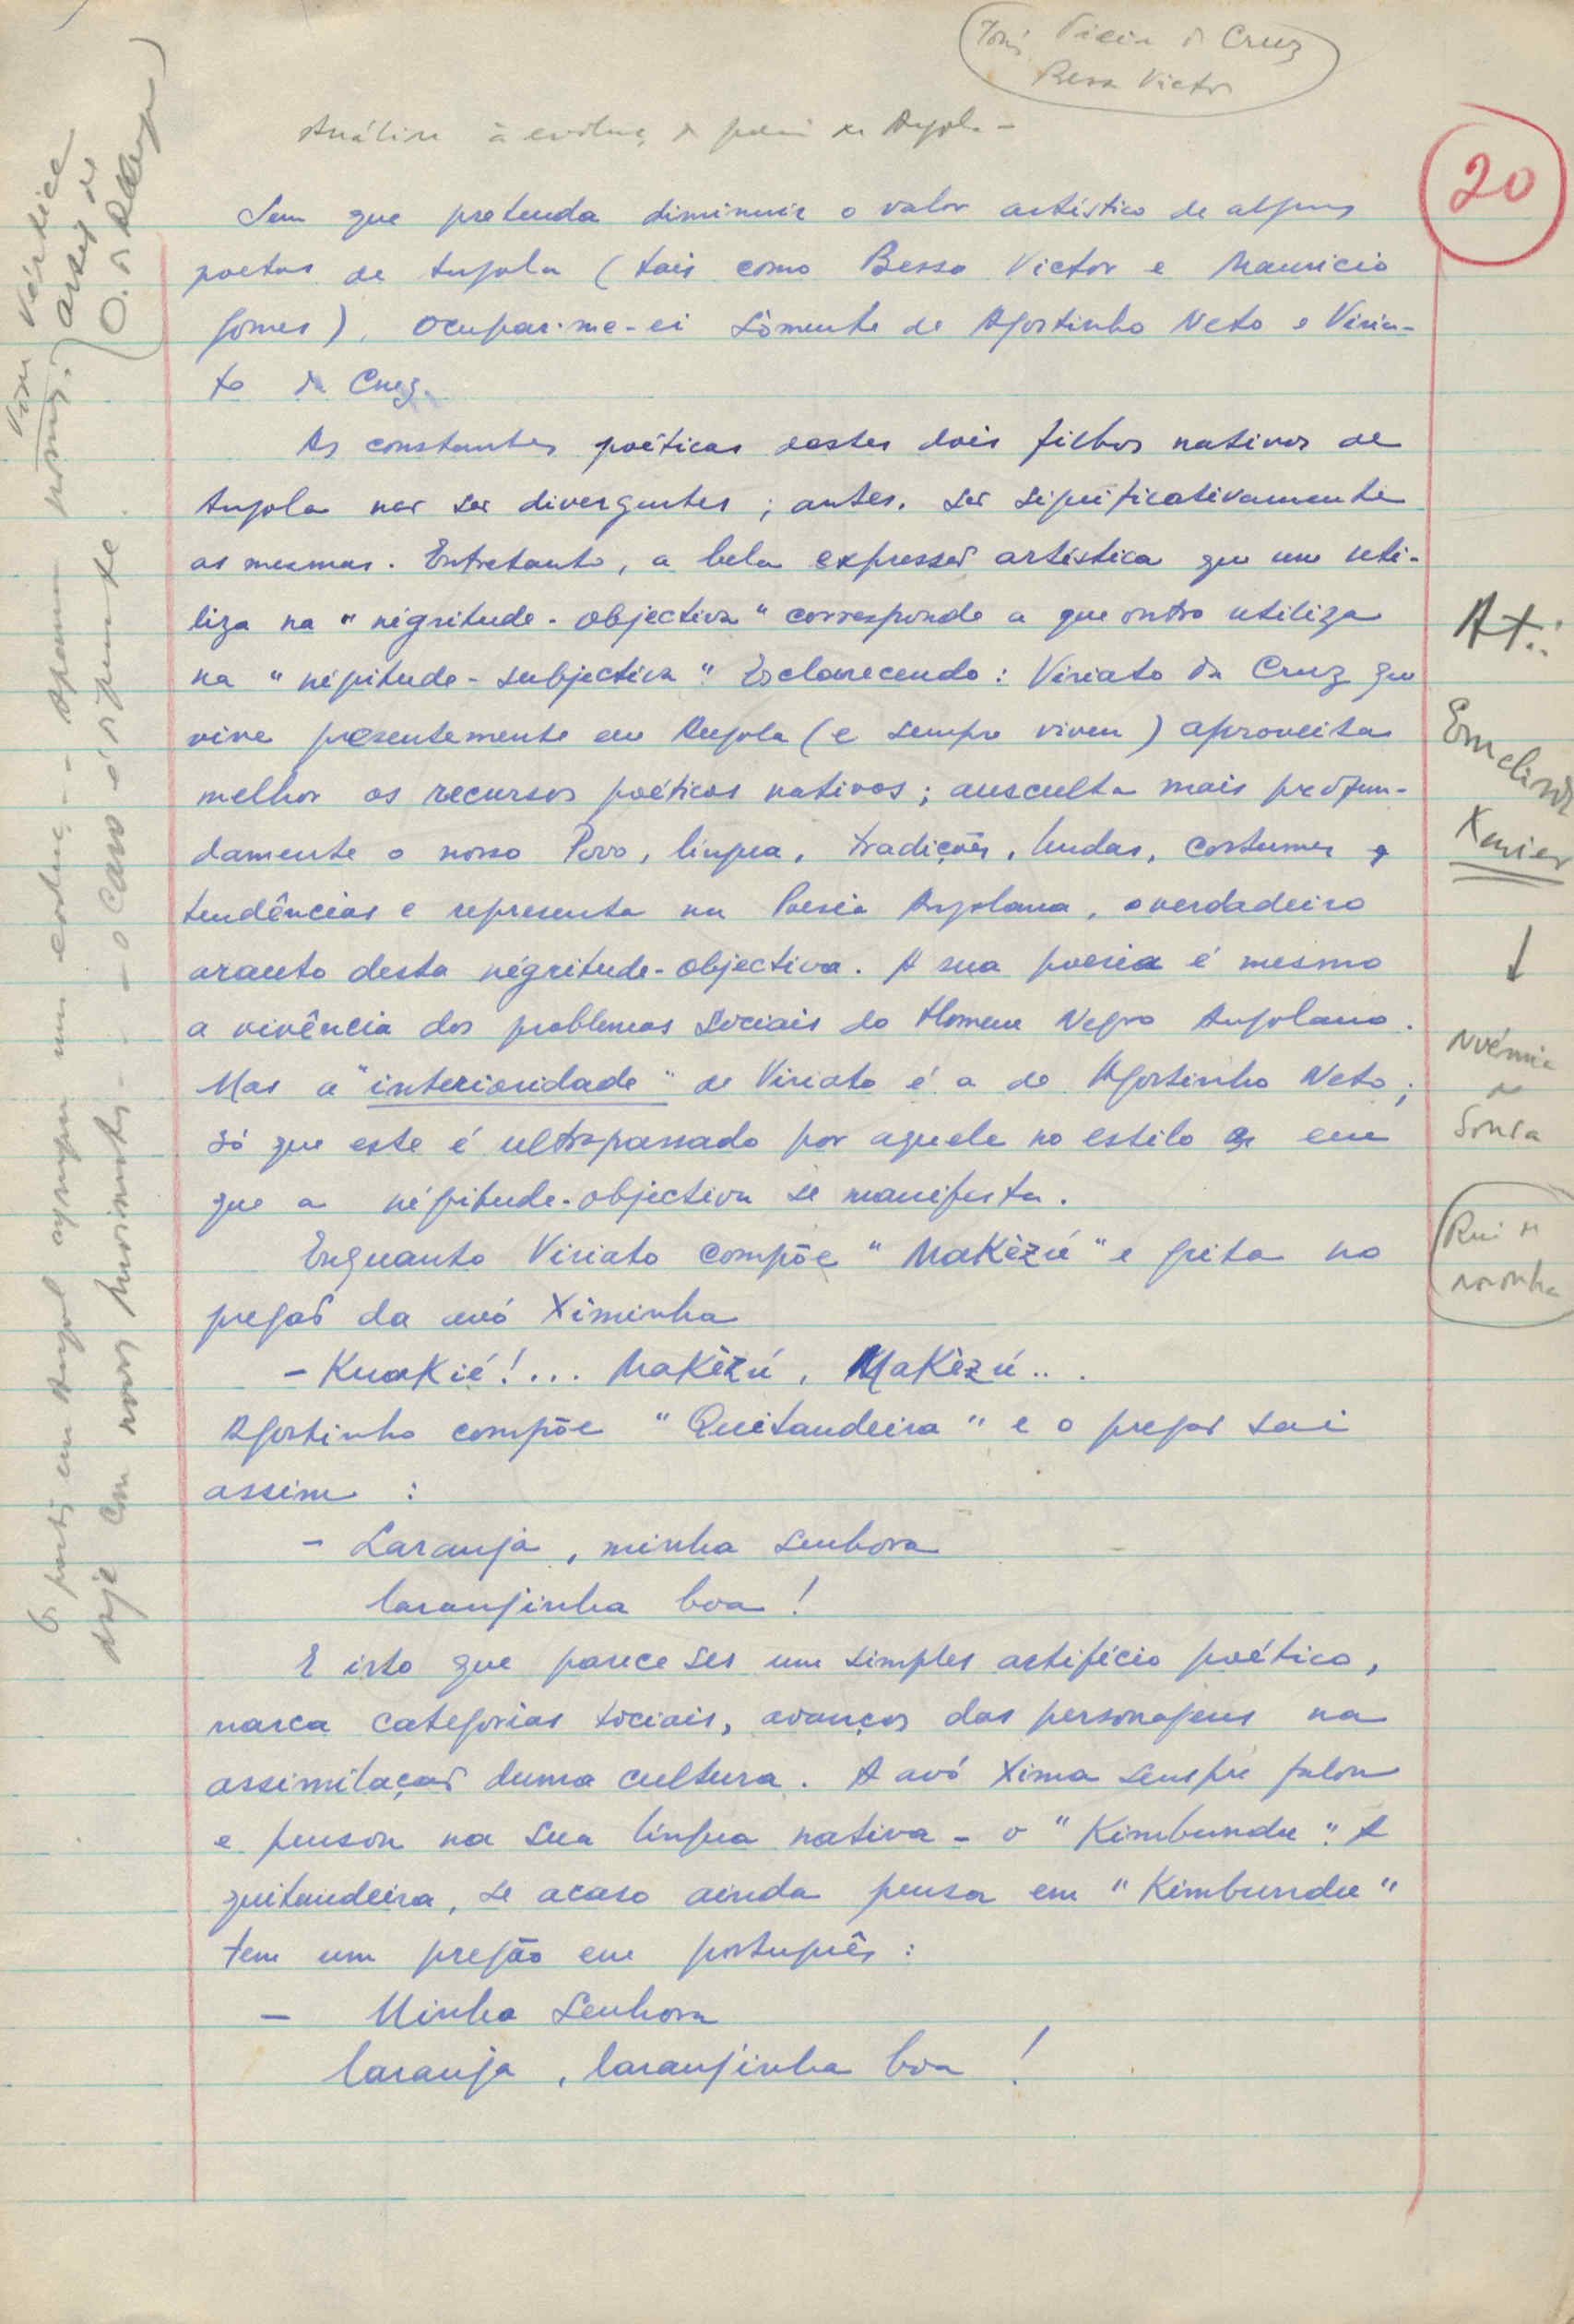 Vieira de Cruz
Bessa Victor
Análise à de Angola -
20
Sem que pretenda diminuir o valor artístico de alguns
poetas de Angola (tais como Bessa Victor e Mauricio
Gomes), ocupar-me-ei sòmente de Agostinho Neto e Viria-
to da Cruz.
As constantes poéticas destes dois filhos nativos de
Angola não são divergentes; antes, são significativamente
as mesmas. Entretanto, a bela expressão artística que um uti-
liza na "négritude-objectiva" corresponde a que outro utiliza
na "négritude-subjectiva". Esclarecendo: Viriato da Cruz que
vive presentemente em Angola (e sempre viveu) aproveita
melhor os recursos poéticos nativos; ausculta mais profun-
damente o nosso Povo, língua, tradições, lendas, costumes e
tendências e representa na Poesia Angolana, o verdadeiro
arauto desta négritude-objectiva. A sua poesia é mesmo
a vivência dos problemas sociais do Homem Negro Angolano.
Mas a "interioridade" de Viriato é a de Agostinho Neto;
só que este é ultrapassado por aquele no estilo em
que a négritude-objectiva se manifesta.
Enquanto Viriato compõe "Makèzú" e grita no
pregão da avó Ximinha
- Kuakié!... Makèzú, Makèzú...
Agostinho compõe "Quitandeira" e o pregão sai
assim :
- Laranja, minha senhora
laranjinha boa!
E isto que parece ser um simples artifício poético,
marca categorias sociais, avanços das personagens na
assimilação duma cultura. A avó Xima sempre falou
e pensou na sua língua nativa - o "Kimbundu". A
quitandeira, se acaso ainda pensa em "Kimbundu"
tem um pregão em português :
- Minha Senhora
laranja, laranjinha boa!
At.:
Xavier
↓
Noémia
de
Sousa
Rui de
Noronha
Vértice
hoje com novos movimentos - o caso é diferente.